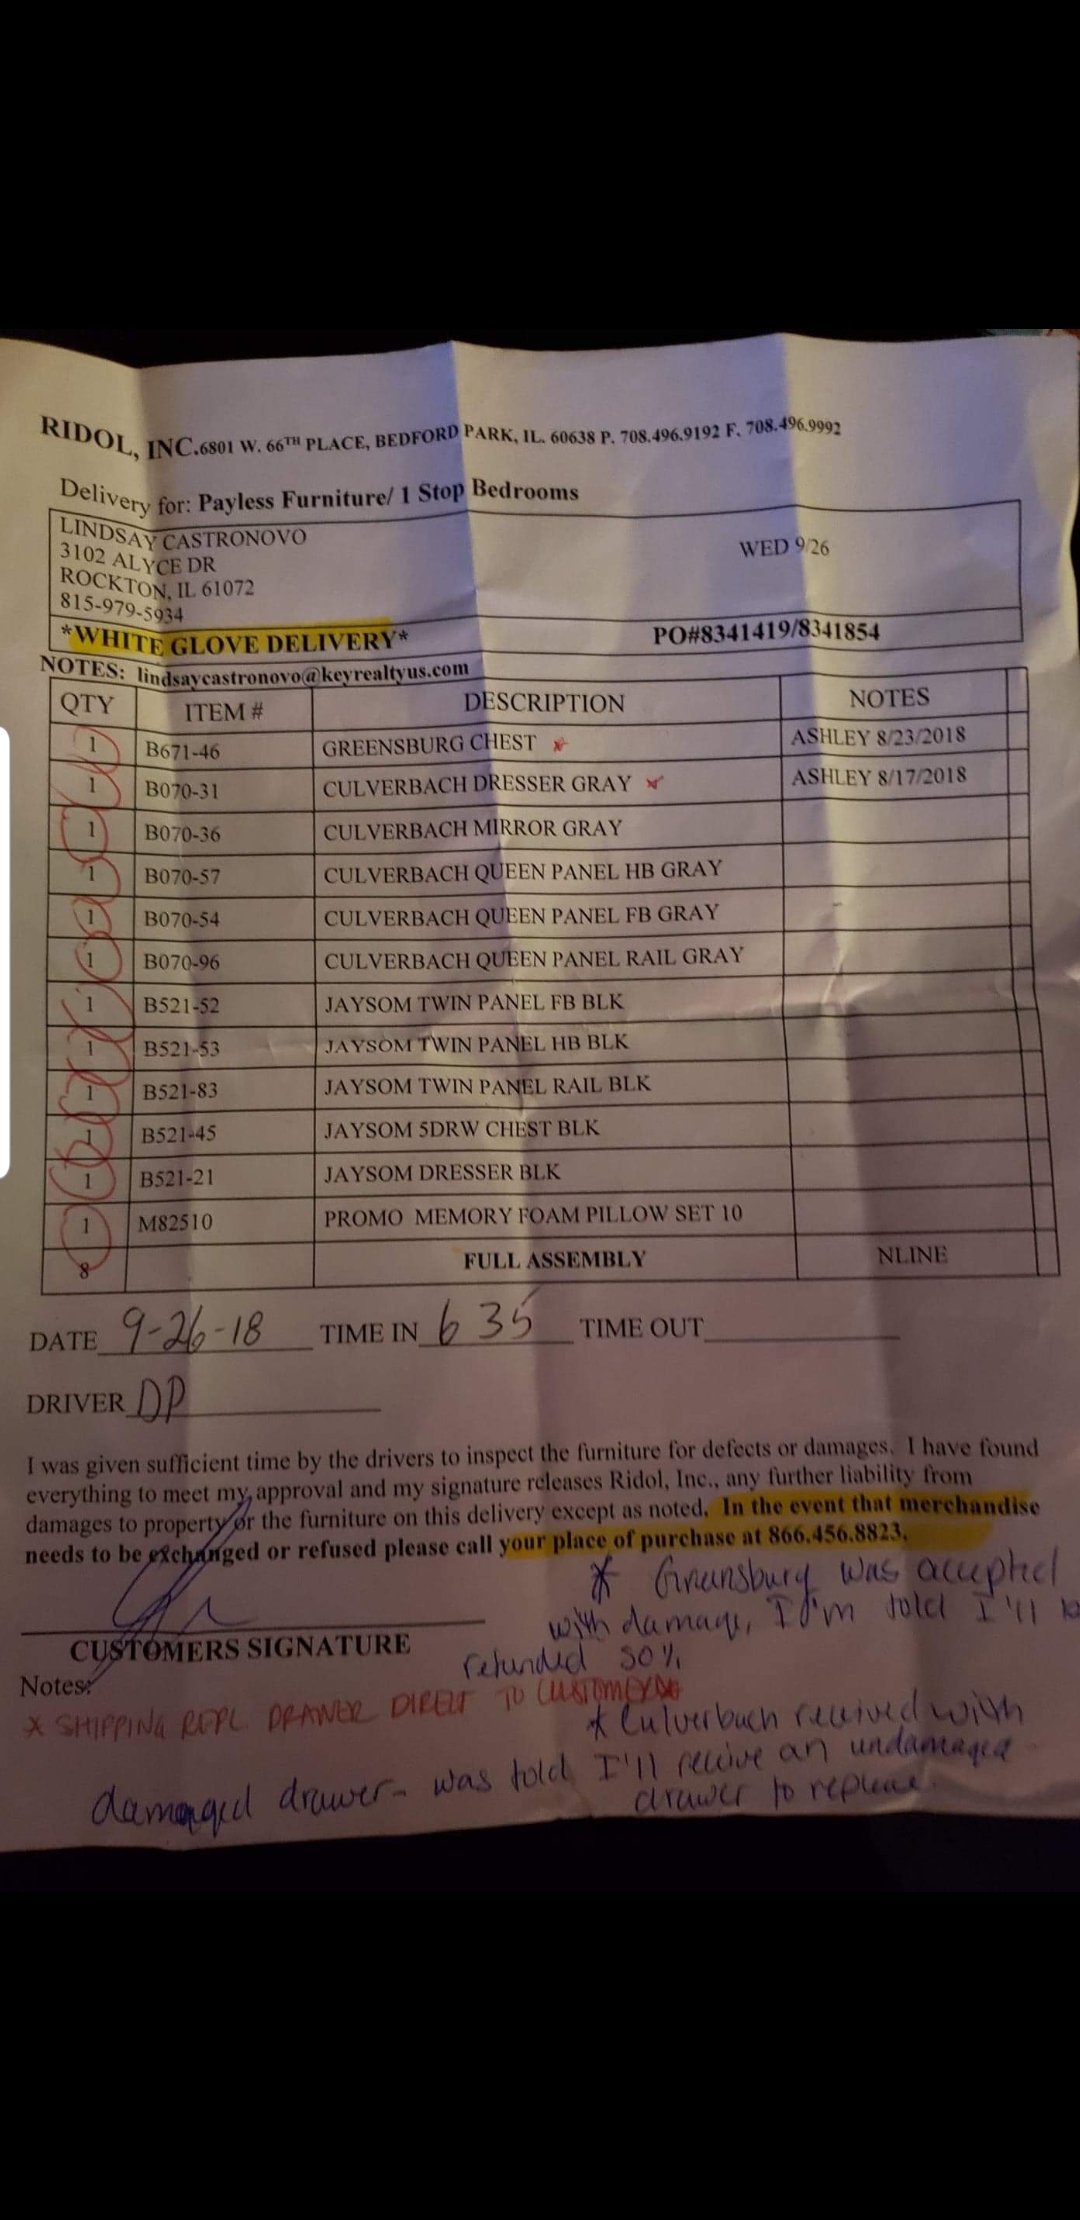 RIDOL, INC.6801 W. 66TH PLACE, BEDFORD PARK, IL. 60638 P. 708.496.9192 F. 708.496.9992
Delivery for: Payless Furniture/ 1 Stop Bedrooms
LINDSAY CASTRONOVO
3102 ALYCE DR
ROCKTON, IL 61072
815-979-5934
WED 9/26
*WHITE GLOVE DELIVERY* PO#8341419/8341854
NOTES: lindsaycastronovo@keyrealtyus.com
QTY ITEM # DESCRIPTION NOTES
1 B671-46 GREENSBURG CHEST * ASHLEY 8/23/2018
1 B070-31 CULVERBACH DRESSER GRAY * ASHLEY 8/17/2018
1 B070-36 CULVERBACH MIRROR GRAY
1 B070-57 CULVERBACH QUEEN PANEL HB GRAY
1 B070-54 CULVERBACH QUEEN PANEL FB GRAY
1 B070-96 CULVERBACH QUEEN PANEL RAIL GRAY
1 B521-52 JAYSOM TWIN PANEL FB BLK
1 B521-53 JAYSOM TWIN PANEL HB BLK
1 B521-83 JAYSOM TWIN PANEL RAIL BLK
1 B521-45 JAYSOM 5DRW CHEST BLK
1 B521-21 JAYSOM DRESSER BLK
1 M82510 PROMO MEMORY FOAM PILLOW SET 10
8 FULL ASSEMBLY NLINE
DATE 9-26-18 TIME IN 6 35 TIME OUT
DRIVER DP
I was given sufficient time by the drivers to inspect the furniture for defects or damages. I have found
everything to meet my approval and my signature releases Ridol, Inc., any further liability from
damages to property or the furniture on this delivery except as noted. In the event that merchandise
needs to be exchanged or refused please call your place of purchase at 866.456.8823.
* Greensburg was accepted
with damage, I'm told I'll be
refunded 50%
CUSTOMERS SIGNATURE
Notes:
* SHIPPING REPL DRAWER DIRECT TO CUSTOMER
* Culverbach received with
damaged drawer- was told I'll receive an undamaged
drawer to replace.